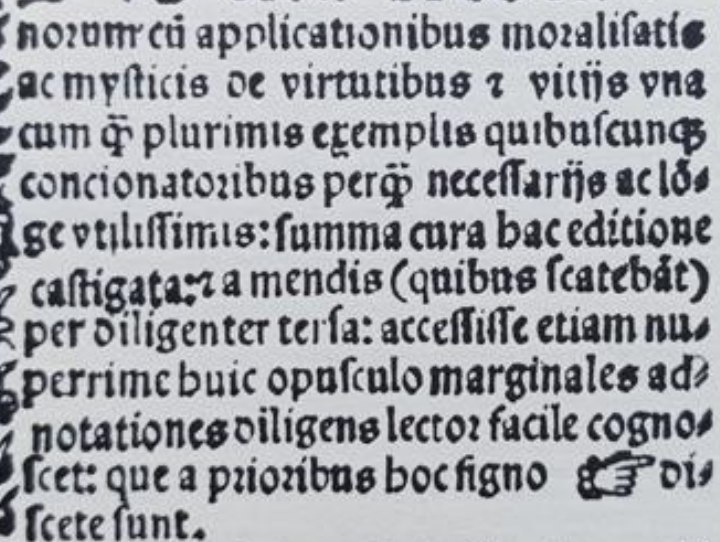 norum cū applicationibus moralisatis
ac mysticis de virtutibus ⁊ vitijs vna
cum q̄ plurimis exemplis quibuscunqꝫ
concionatoribus perq̄ necessarijs ac lō⸗
ge vtilissimis: summa cura hac editione
castigata: ⁊ a mendis (quibus scatebāt)
per diligenter tersa: accessisse etiam nu⸗
perrime huic opusculo marginales ad⸗
notationes diligens lector facile cogno⸗
scet: que a prioribus hoc signo ☞ di⸗
scete sunt.